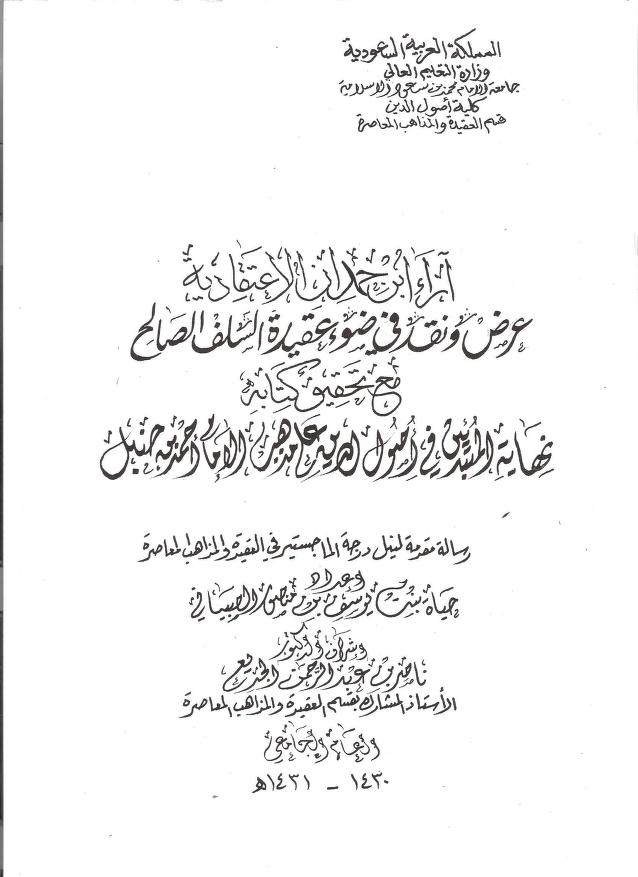 المملكة العربية السعودية
وزارة التعليم العالي
جامعة الإمام محمد بن سعود الإسلامية
كلية أصول الدين
قسم العقيدة والمذاهب المعاصرة
آراء ابن حمدان الاعتقادية
عرض ونقد في ضوء عقيدة السلف الصالح
مع تحقيق كتابه
نهاية المبتدئين في أصول الدين على مذهب الإمام أحمد بن حنبل
رسالة مقدمة لنيل درجة الماجستير في العقيدة والمذاهب المعاصرة
إعداد
حياة بنت يوسف بن
إشراف الدكتور
ناصر بن عبد الرحمن الجديع
الأستاذ المشارك بقسم العقيدة والمذاهب المعاصرة
العام الجامعي
١٤٣٠ - ١٤٣١هـ